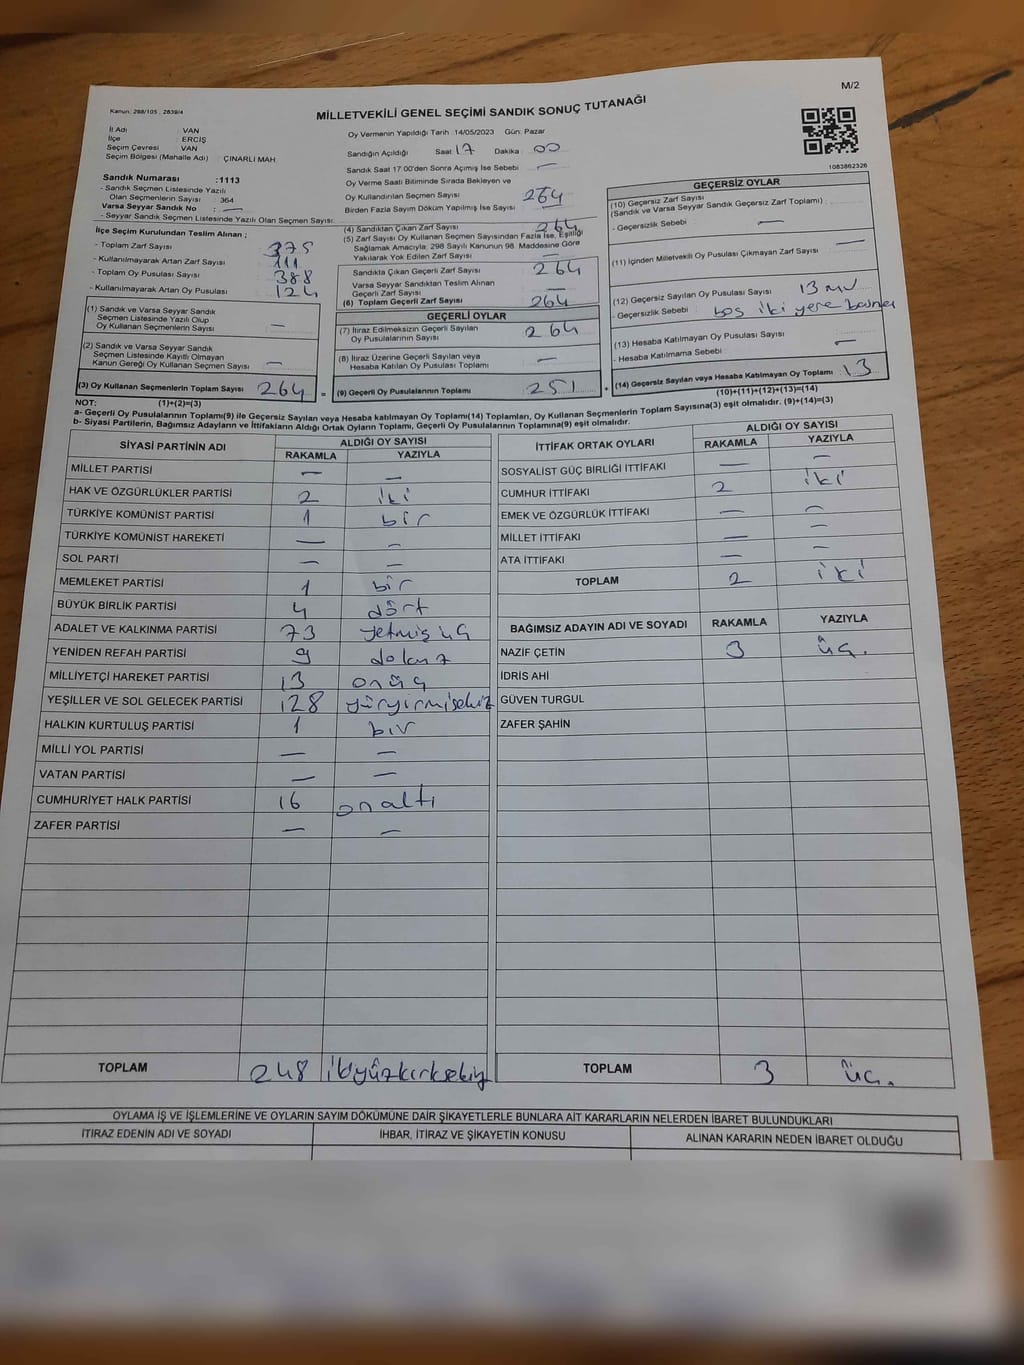 M/2
Kanun: 298/105 , 2839/4
MİLLETVEKİLİ GENEL SEÇİMİ SANDIK SONUÇ TUTANAĞI
İl Adı : VAN
İlçe : ERCİŞ
Seçim Çevresi : VAN
Seçim Bölgesi (Mahalle Adı) : ÇINARLI MAH.
Sandık Numarası :1113
- Sandık Seçmen Listesinde Yazılı
Olan Seçmenlerin Sayısı : 364
Varsa Seyyar Sandık No : —
- Seyyar Sandık Seçmen Listesinde Yazılı Olan Seçmen Sayısı:
İlçe Seçim Kurulundan Teslim Alınan ;
- Toplam Zarf Sayısı : 375
- Kullanılmayarak Artan Zarf Sayısı : 111
- Toplam Oy Pusulası Sayısı : 388
- Kullanılmayarak Artan Oy Pusulası : 124
(1) Sandık ve Varsa Seyyar Sandık
Seçmen Listesinde Yazılı Olup
Oy Kullanan Seçmenlerin Sayısı : —
(2) Sandık ve Varsa Seyyar Sandık
Seçmen Listesinde Kayıtlı Olmayan
Kanun Gereği Oy Kullanan Seçmen Sayısı : —
(3) Oy Kullanan Seçmenlerin Toplam Sayısı 264
(1)+(2)=(3)
Oy Vermenin Yapıldığı Tarih :14/05/2023 Gün: Pazar
Sandığın Açıldığı Saat 17 Dakika : 00
Sandık Saat 17:00'den Sonra Açılmış İse Sebebi : —
Oy Verme Saati Bitiminde Sırada Bekleyen ve
Oy Kullandırılan Seçmen Sayısı : 264
Birden Fazla Sayım Döküm Yapılmış İse Sayısı : —
(4) Sandıktan Çıkan Zarf Sayısı : 264
(5) Zarf Sayısı Oy Kullanan Seçmen Sayısından Fazla İse, Eşitliği
Sağlamak Amacıyla, 298 Sayılı Kanunun 98. Maddesine Göre
Yakılarak Yok Edilen Zarf Sayısı : —
Sandıkta Çıkan Geçerli Zarf Sayısı : 264
Varsa Seyyar Sandıktan Teslim Alınan
Geçerli Zarf Sayısı : —
(6) Toplam Geçerli Zarf Sayısı : 264
GEÇERLİ OYLAR
(7) İtiraz Edilmeksizin Geçerli Sayılan
Oy Pusulalarının Sayısı : 264
(8) İtiraz Üzerine Geçerli Sayılan veya
Hesaba Katılan Oy Pusulası Toplamı : —
= (9) Geçerli Oy Pusulalarının Toplamı : 251
1083862326
GEÇERSİZ OYLAR
(10) Geçersiz Zarf Sayısı
(Sandık ve Varsa Seyyar Sandık Geçersiz Zarf Toplamı) :
- Geçersizlik Sebebi : —
(11) İçinden Milletvekili Oy Pusulası Çıkmayan Zarf Sayısı : —
(12) Geçersiz Sayılan Oy Pusulası Sayısı : 13
- Geçersizlik Sebebi : boş iki yere
(13) Hesaba Katılmayan Oy Pusulası Sayısı :
- Hesaba Katılmama Sebebi : —
+ (14) Geçersiz Sayılan veya Hesaba Katılmayan Oy Toplamı : 13
(10)+(11)+(12)+(13)=(14)
NOT:
a- Geçerli Oy Pusulalarının Toplamı(9) ile Geçersiz Sayılan veya Hesaba katılmayan Oy Toplamı(14) Toplamları, Oy Kullanan Seçmenlerin Toplam Sayısına(3) eşit olmalıdır. (9)+(14)=(3)
b- Siyasi Partilerin, Bağımsız Adayların ve İttifakların Aldığı Ortak Oyların Toplamı, Geçerli Oy Pusulalarının Toplamına(9) eşit olmalıdır.
SİYASİ PARTİNİN ADI ALDIĞI OY SAYISI
RAKAMLA YAZIYLA
MİLLET PARTİSİ — —
HAK VE ÖZGÜRLÜKLER PARTİSİ 2 iki
TÜRKİYE KOMÜNİST PARTİSİ 1 bir
TÜRKİYE KOMÜNİST HAREKETİ — —
SOL PARTİ — —
MEMLEKET PARTİSİ 1 bir
BÜYÜK BİRLİK PARTİSİ 4 dört
ADALET VE KALKINMA PARTİSİ 73 yetmiş üç
YENİDEN REFAH PARTİSİ 9 dokuz
MİLLİYETÇİ HAREKET PARTİSİ 13 onüç
YEŞİLLER VE SOL GELECEK PARTİSİ 128 yüzyirmisekiz
HALKIN KURTULUŞ PARTİSİ 1 bir
MİLLİ YOL PARTİSİ — —
VATAN PARTİSİ — —
CUMHURİYET HALK PARTİSİ 16 onaltı
ZAFER PARTİSİ — —
TOPLAM 248 ikiyüzkırksekiz
İTTİFAK ORTAK OYLARI ALDIĞI OY SAYISI
RAKAMLA YAZIYLA
SOSYALİST GÜÇ BİRLİĞİ İTTİFAKI — —
CUMHUR İTTİFAKI 2 iki
EMEK VE ÖZGÜRLÜK İTTİFAKI — —
MİLLET İTTİFAKI — —
ATA İTTİFAKI — —
TOPLAM 2 iki
BAĞIMSIZ ADAYIN ADI VE SOYADI RAKAMLA YAZIYLA
NAZİF ÇETİN 3 üç.
İDRİS AHİ
GÜVEN TURGUL
ZAFER ŞAHİN
TOPLAM 3 üç.
OYLAMA İŞ VE İŞLEMLERİNE VE OYLARIN SAYIM DÖKÜMÜNE DAİR ŞİKAYETLERLE BUNLARA AİT KARARLARIN NELERDEN İBARET BULUNDUKLARI
İTİRAZ EDENİN ADI VE SOYADI İHBAR, İTİRAZ VE ŞİKAYETİN KONUSU ALINAN KARARIN NEDEN İBARET OLDUĞU